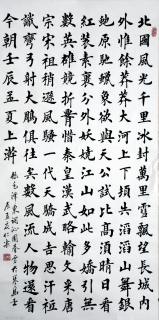 北國風光千里冰封萬里雪飄望長城内
外惟餘莽莽大河上下頓失滔滔山舞銀
蛇原馳蠟象欲與天公試比高須晴日看
紅裝素裹分外妖嬈江山如此多嬌引無
數英雄競折腰惜秦皇漢武略輸文采唐
宗宋祖稍遜風騷一代天驕成吉思汗祗
識彎弓射大鵰俱往矣數風流人物還看
今朝壬辰孟夏上澣
毛澤東詞沁園春雪